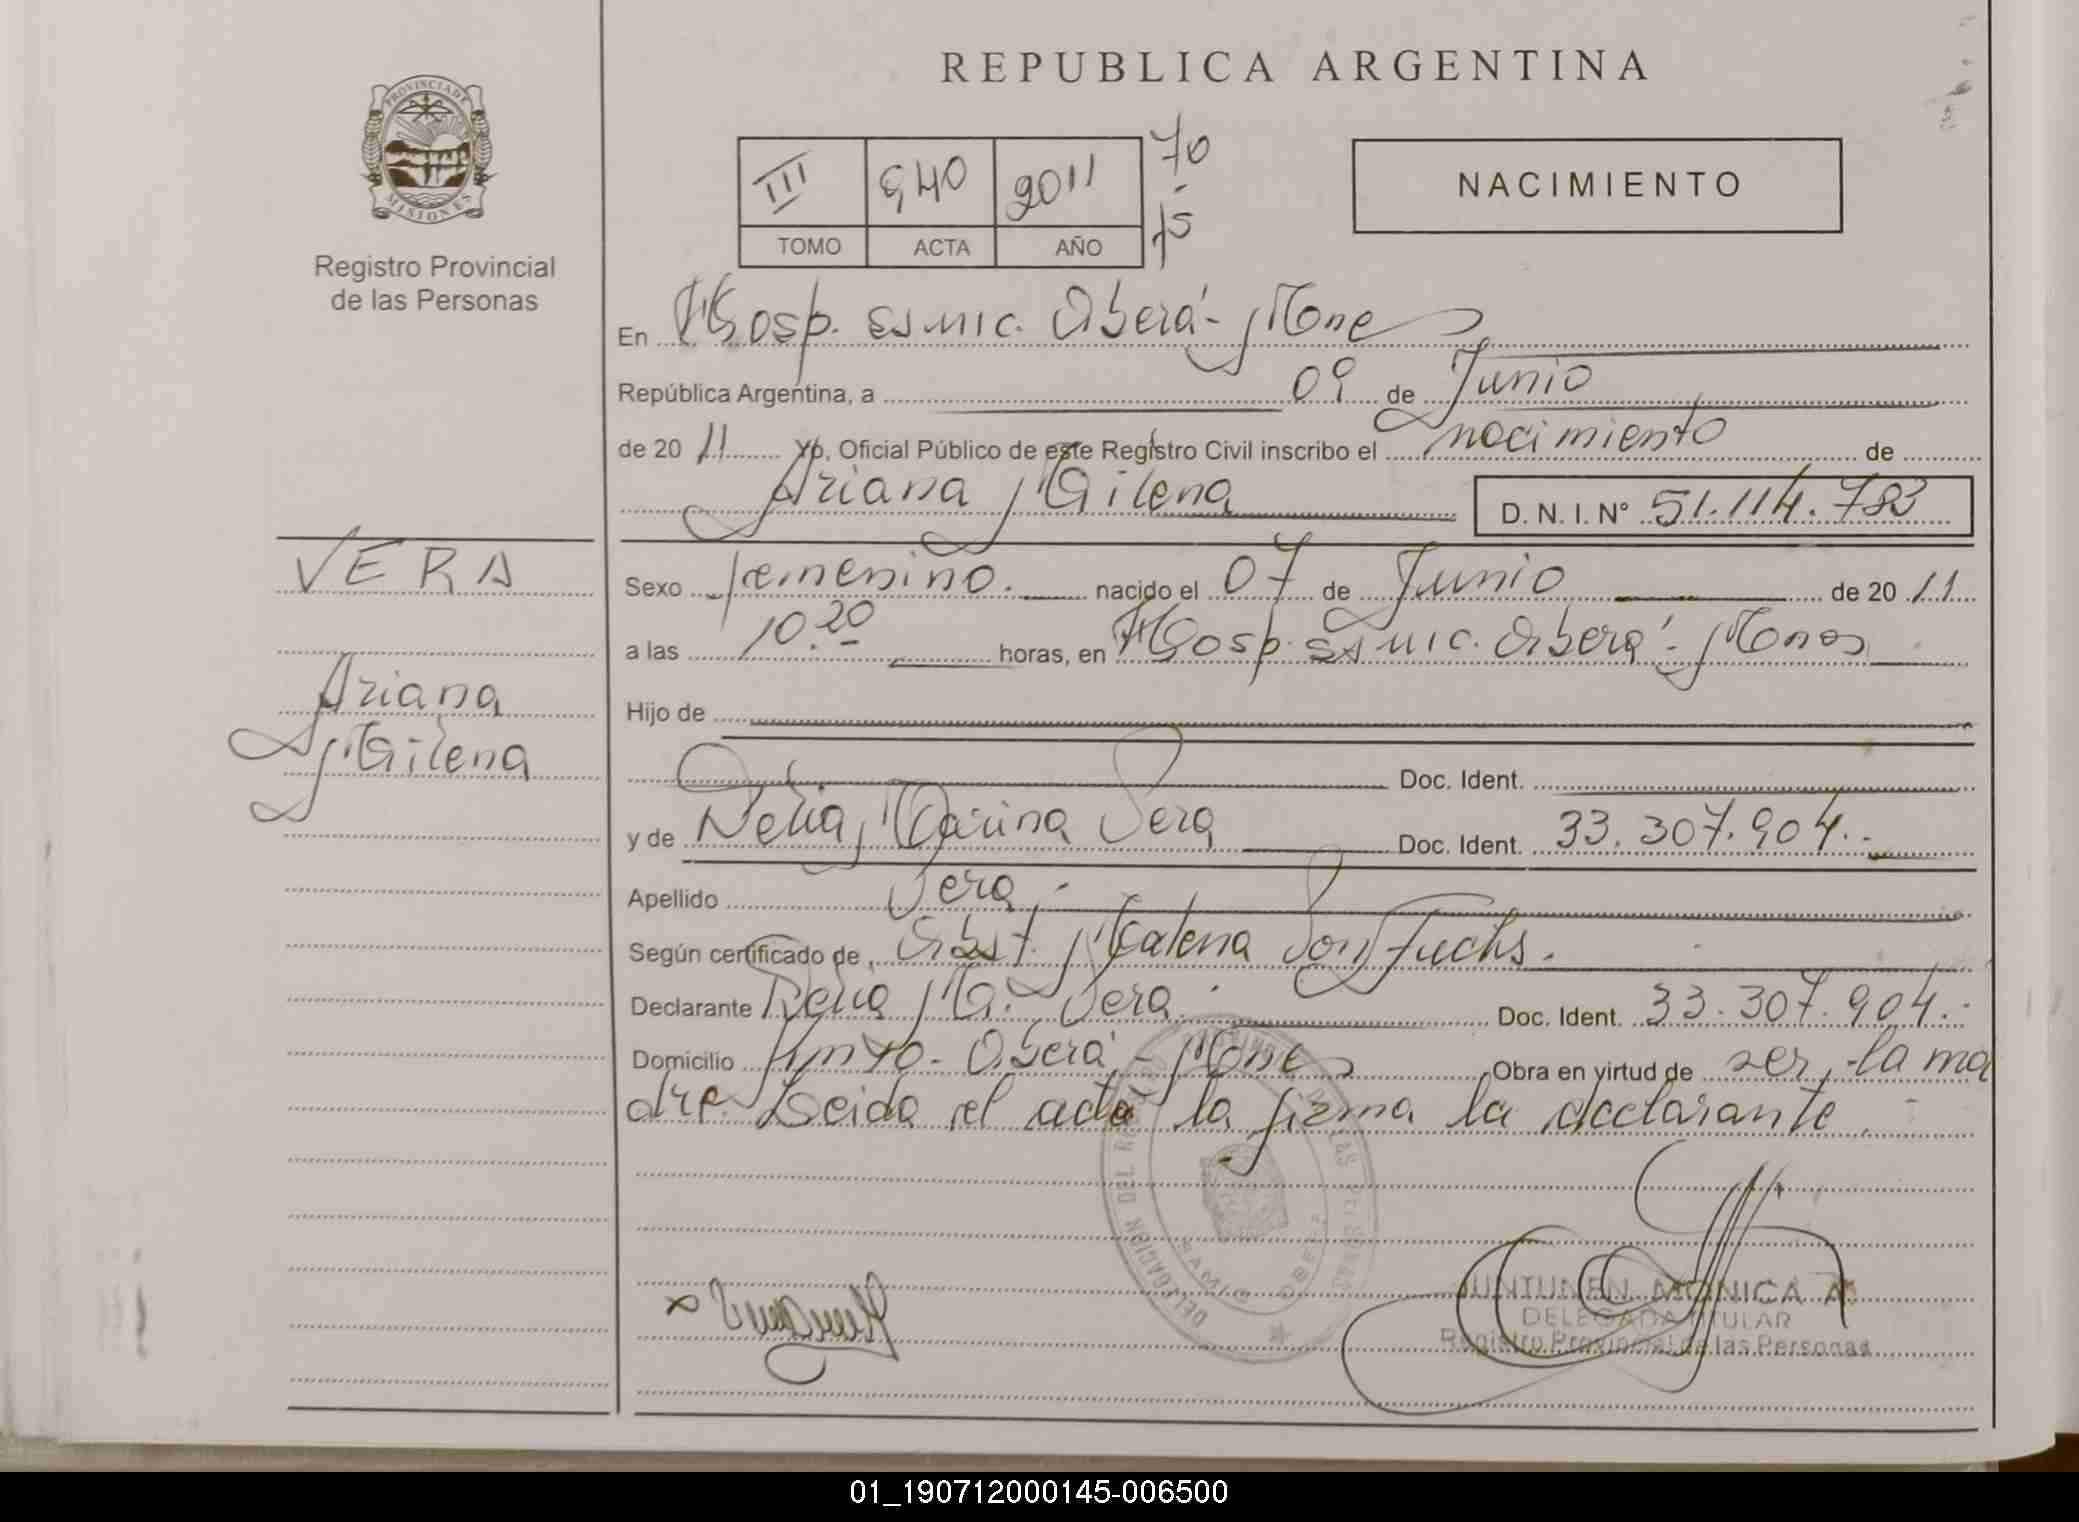 REPUBLICA ARGENTINA
PROVINCIA DE MISIONES
Registro Provincial
de las Personas
III 940 2011 70
TOMO ACTA AÑO 75
NACIMIENTO
En Hosp. SSMIC. Oberá - Mnes
República Argentina, a 09 de Junio
de 20 11 Yo, Oficial Público de este Registro Civil inscribo el nacimiento de
Ariana Milena D. N. I. N° 51.114.783
VERA
Ariana
Milena
Sexo femenino. nacido el 07 de Junio de 20 11
a las 10.20 horas, en Hosp. SSMIC. Oberá - Mnes
Hijo de
Doc. Ident.
y de Delia Marina Vera Doc. Ident. 33.307.904.-
Apellido Vera.-
Según certificado de Obst. Malena Von Fuchs.
Declarante Delia M. Vera. Doc. Ident. 33.307.904.-
Domicilio Oberá - Mnes Obra en virtud de ser la ma
dre. Leida el acta la firma la declarante.
DELEGACION DEL REGISTRO PROVINCIAL DE LAS PERSONAS
SAMIC OBERA
JUNTUNEN MONICA A.
DELEGADA TITULAR
Registro Provincial de las Personas
01_190712000145-006500